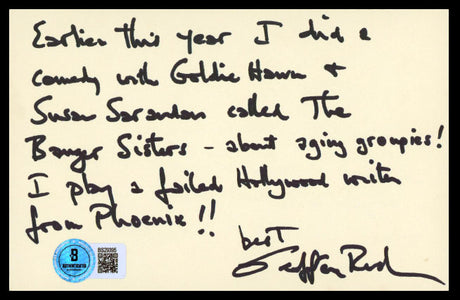 Earlier this year I did a
comedy with Goldie Hawn &
Susan Sarandon called The
Banger Sisters - about aging groupies!
I play a failed Hollywood writer
from Phoenix!!
best
Geoffrey Rush
B
AUTHENTICATED
BS29395